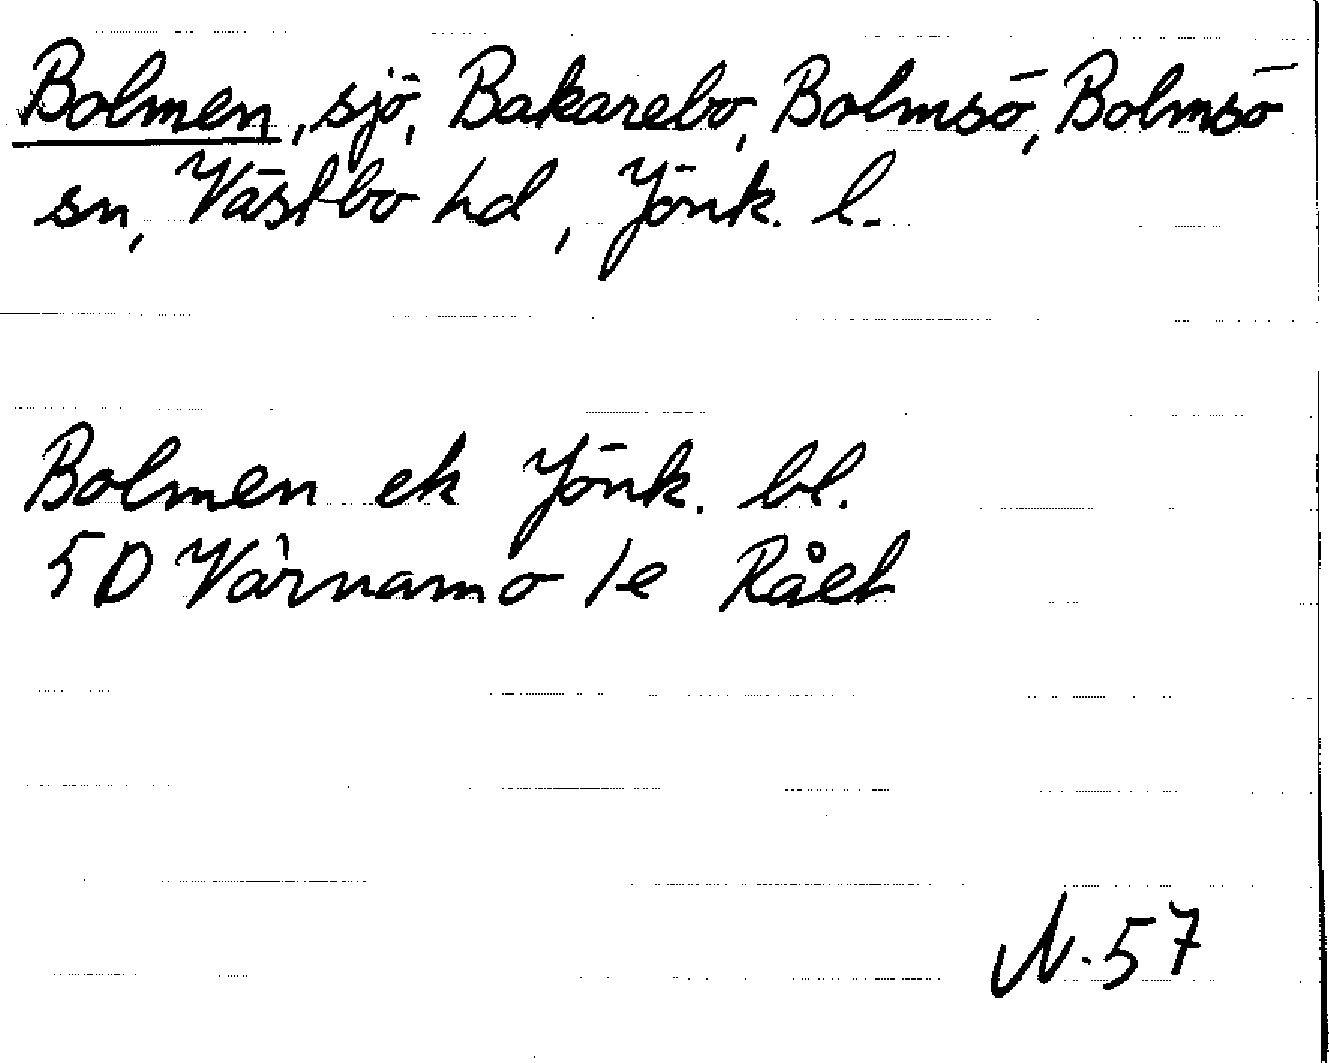 Bolmen, sjö, Bakarebo, Bolmsö, Bolmsö
sn, Västbo hd, Jönk. l.
Bolmen ek Jönk. bl.
5D Värnamo 1e Råeh
N. 57